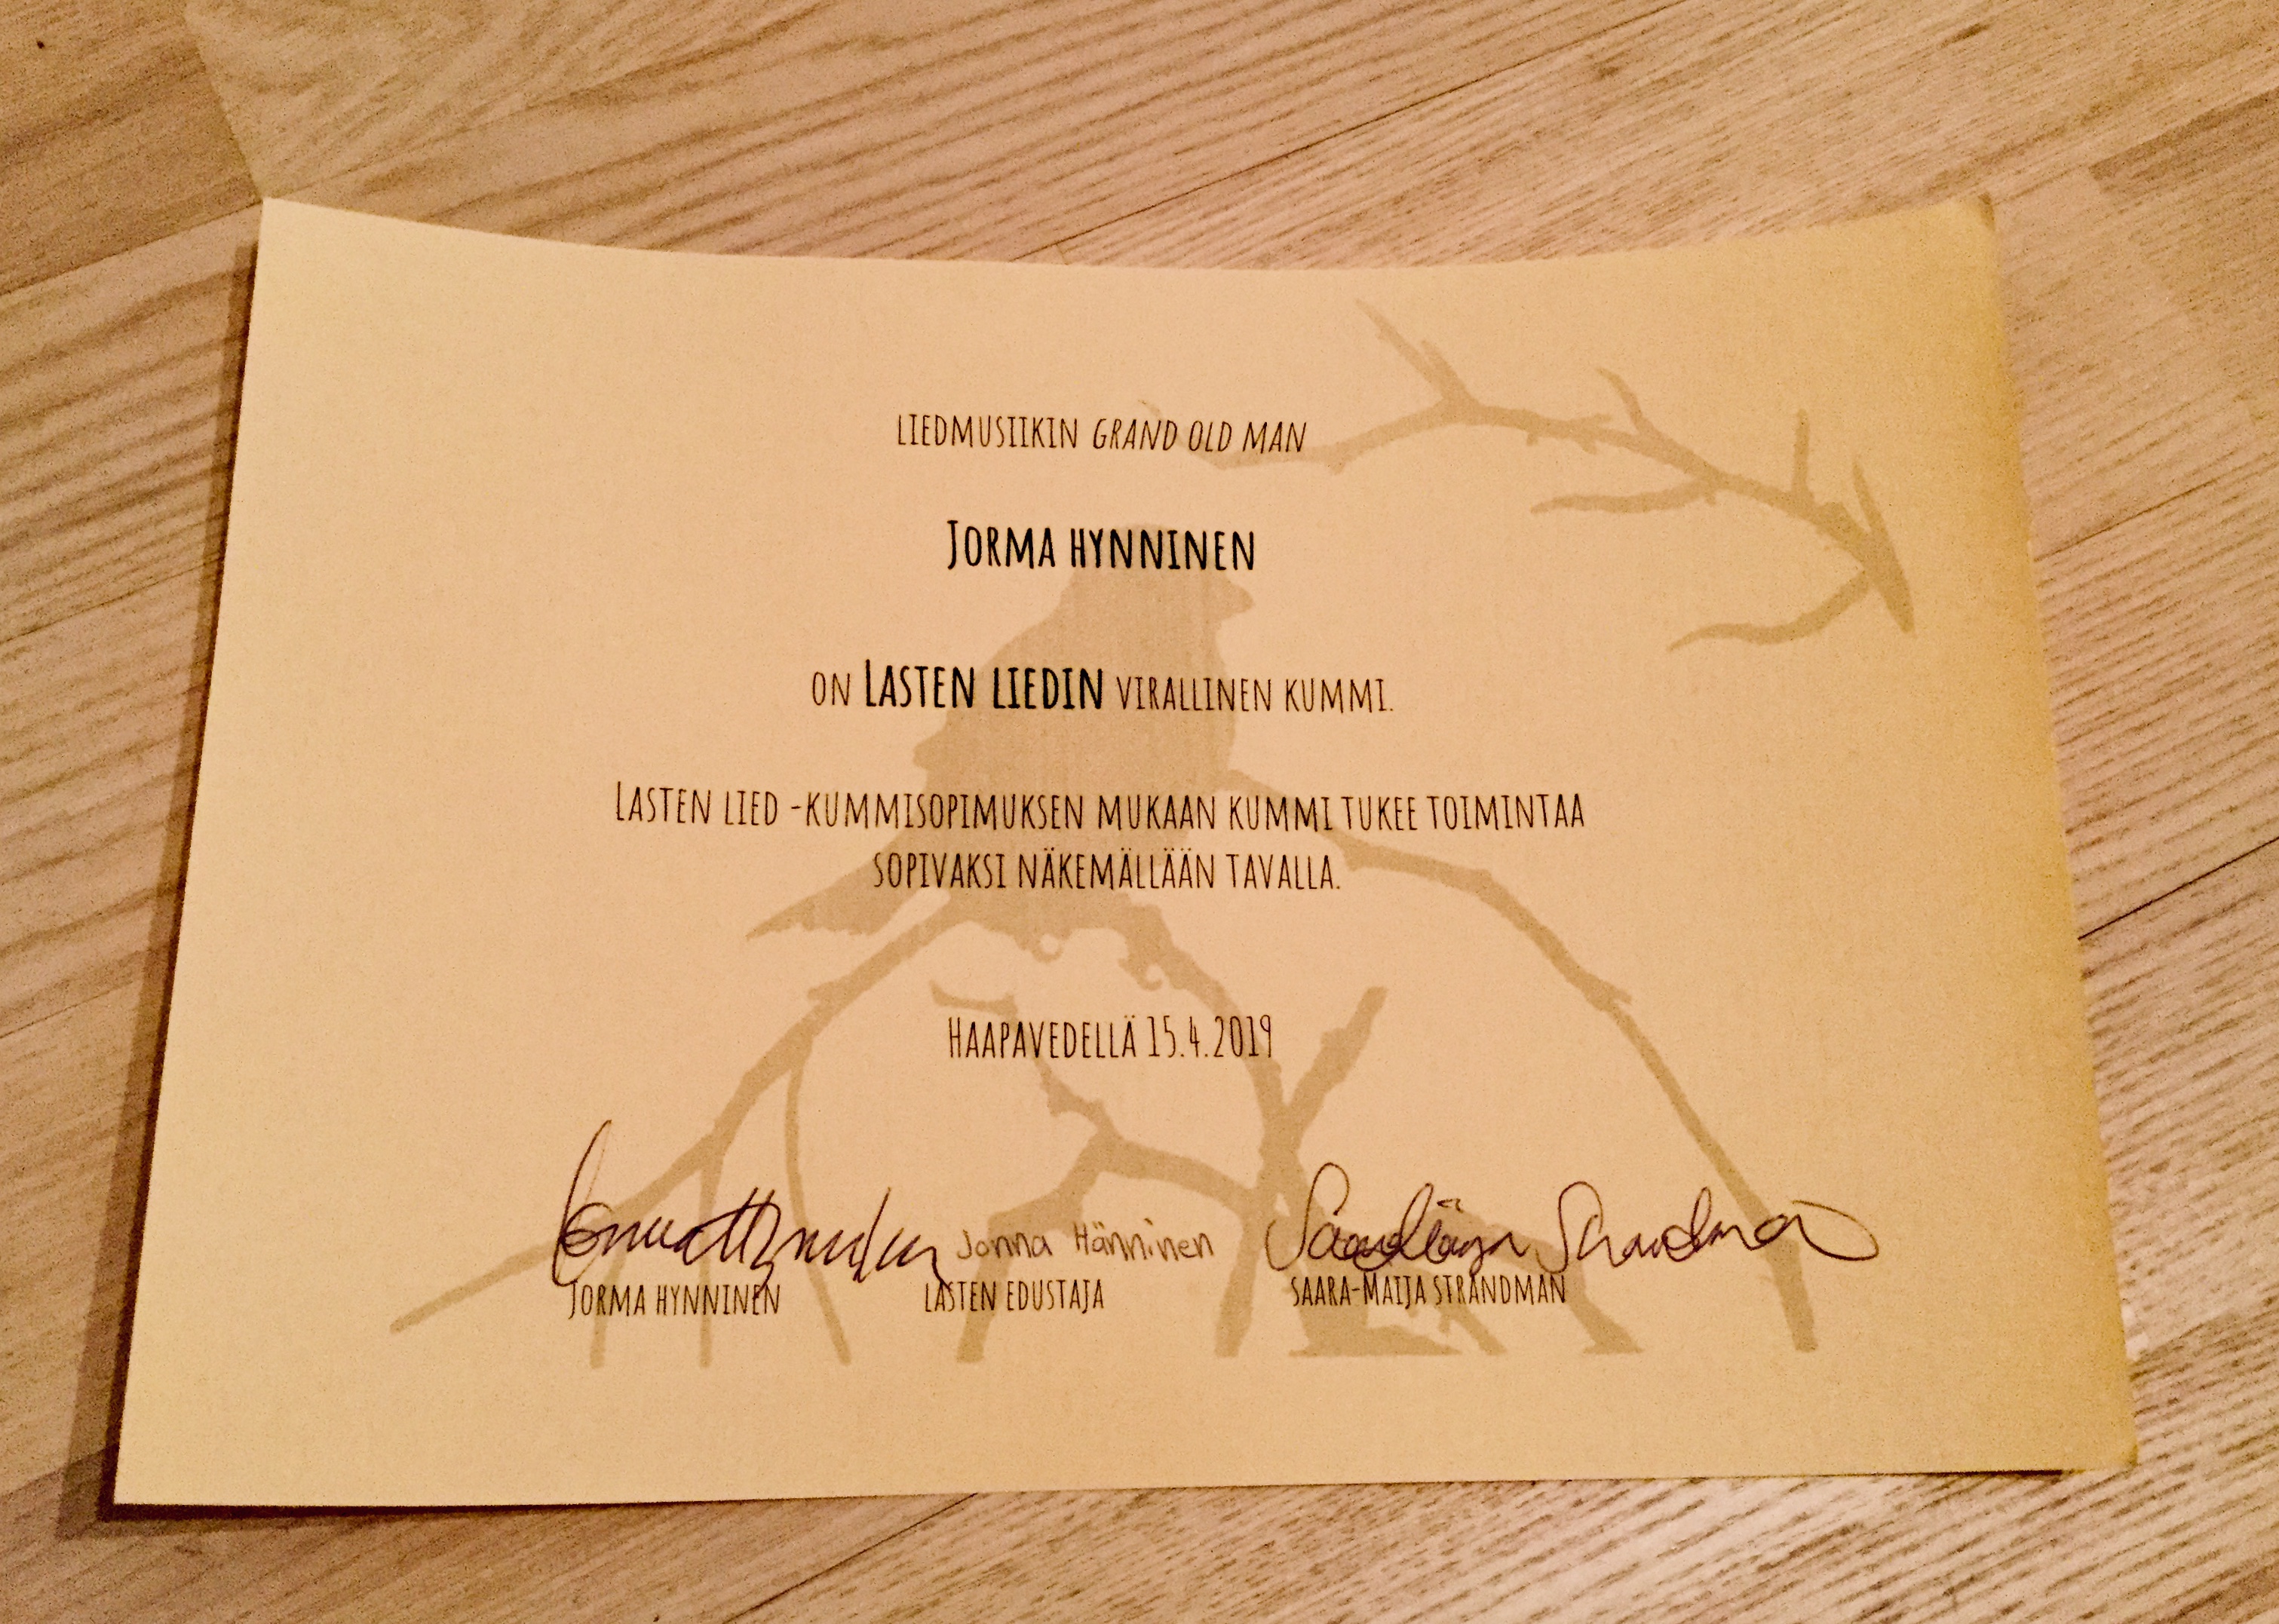 LIEDMUSIIKIN GRAND OLD MAN
JORMA HYNNINEN
ON LASTEN LIEDIN VIRALLINEN KUMMI.
LASTEN LIED -KUMMISOPIMUKSEN MUKAAN KUMMI TUKEE TOIMINTAA
SOPIVAKSI NÄKEMÄLLÄÄN TAVALLA.
HAAPAVEDELLÄ 15.4.2019
Jorma Hynninen Jonna Hänninen Saara-Maija Strandman
JORMA HYNNINEN LASTEN EDUSTAJA SAARA-MAIJA STRANDMAN